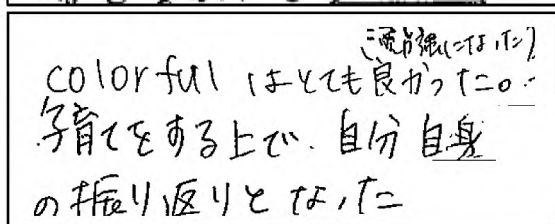 (涙目線になった)
colorfulはとても良かった。
子育てをする上で、自分自身
の振り返りとなった